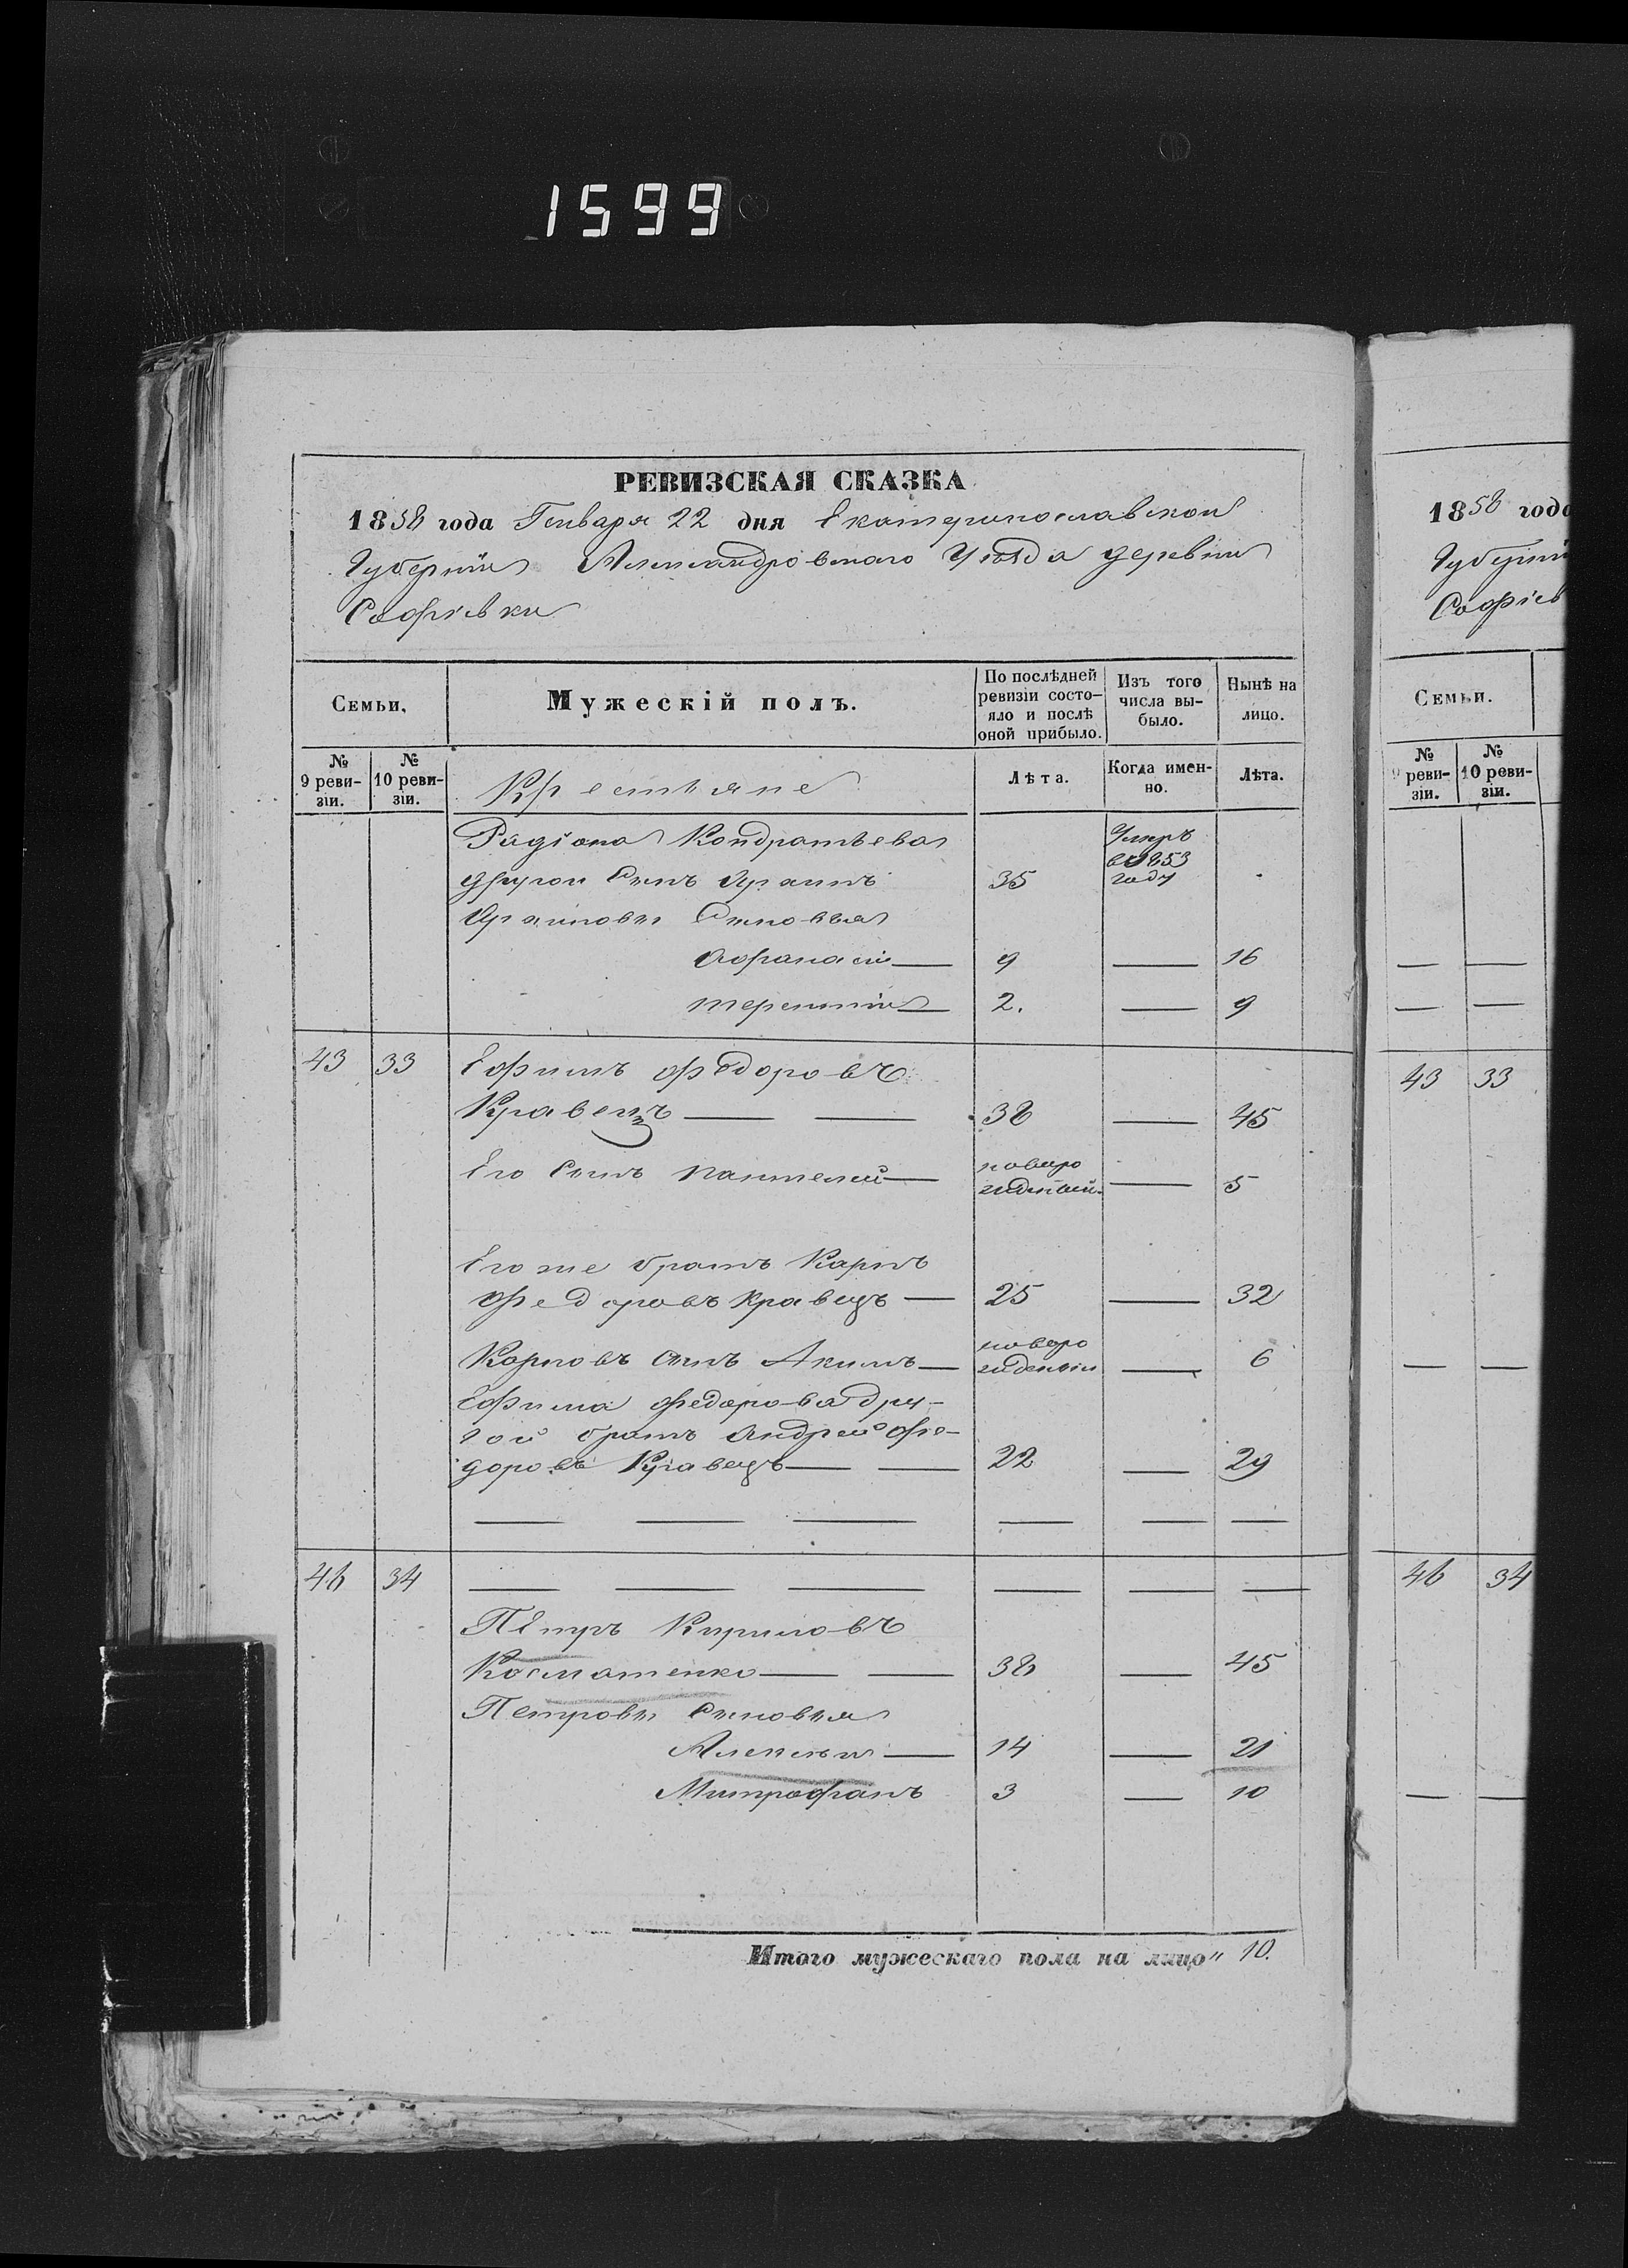 1599
РЕВИЗСКАЯ СКАЗКА
1858 года Генваря 22 дня Екатеринославской
Губерніи Александровскаго Уѣзда деревни
Софіевки
Семьи. Мужескій полъ. По послѣдней ревизіи состояло и послѣ оной прибыло. Изъ того числа выбыло. Нынѣ на лицо.
№ 9 ревизіи. № 10 ревизіи. Крестьяне Лѣта. Когда именно. Лѣта.
Радіона Кондратьева Умеръ
в 1853
другой Сынъ 35 году
Сыновья
Афанасій — 9 — 16
Терентій — 2. — 9
43 33 Ефимъ Федоровъ
Кравецъ — — 38 — 45
Его Сынъ Пантелей — новоро
жденный — 5
Его же братъ Карпъ
Федоровъ Кравецъ — 25 — 32
Карповъ сынъ Акимъ — новоро
жденный — 6
Ефима Федорова дру-
гой братъ Андрей Фе-
доровъ Кравецъ — — 22 — 29
— — — — — —
46 34 — — — — — —
Петръ Кириловъ
Косматенко — — 38 — 45
Петровы Сыновья
Алексѣй — 14 — 21
Митрофанъ 3 — 10
Итого мужескаго пола на лицо „ 10.
1858 года
Губерніи
Софіев
Семьи.
№ 9 ревизіи. № 10 ревизіи.
— —
— —
43 33
— —
46 34
— —